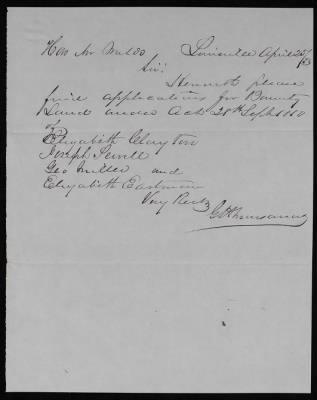 Hon Mr Waldo Louisville April 25/53
Sir:
Herewith please
find applications for Bounty
Land under Act 28th Sept 1850
of
Elizabeth Clayton
Joseph Sewell
Geo Miller and
Elizabeth Eastman
Very Resp